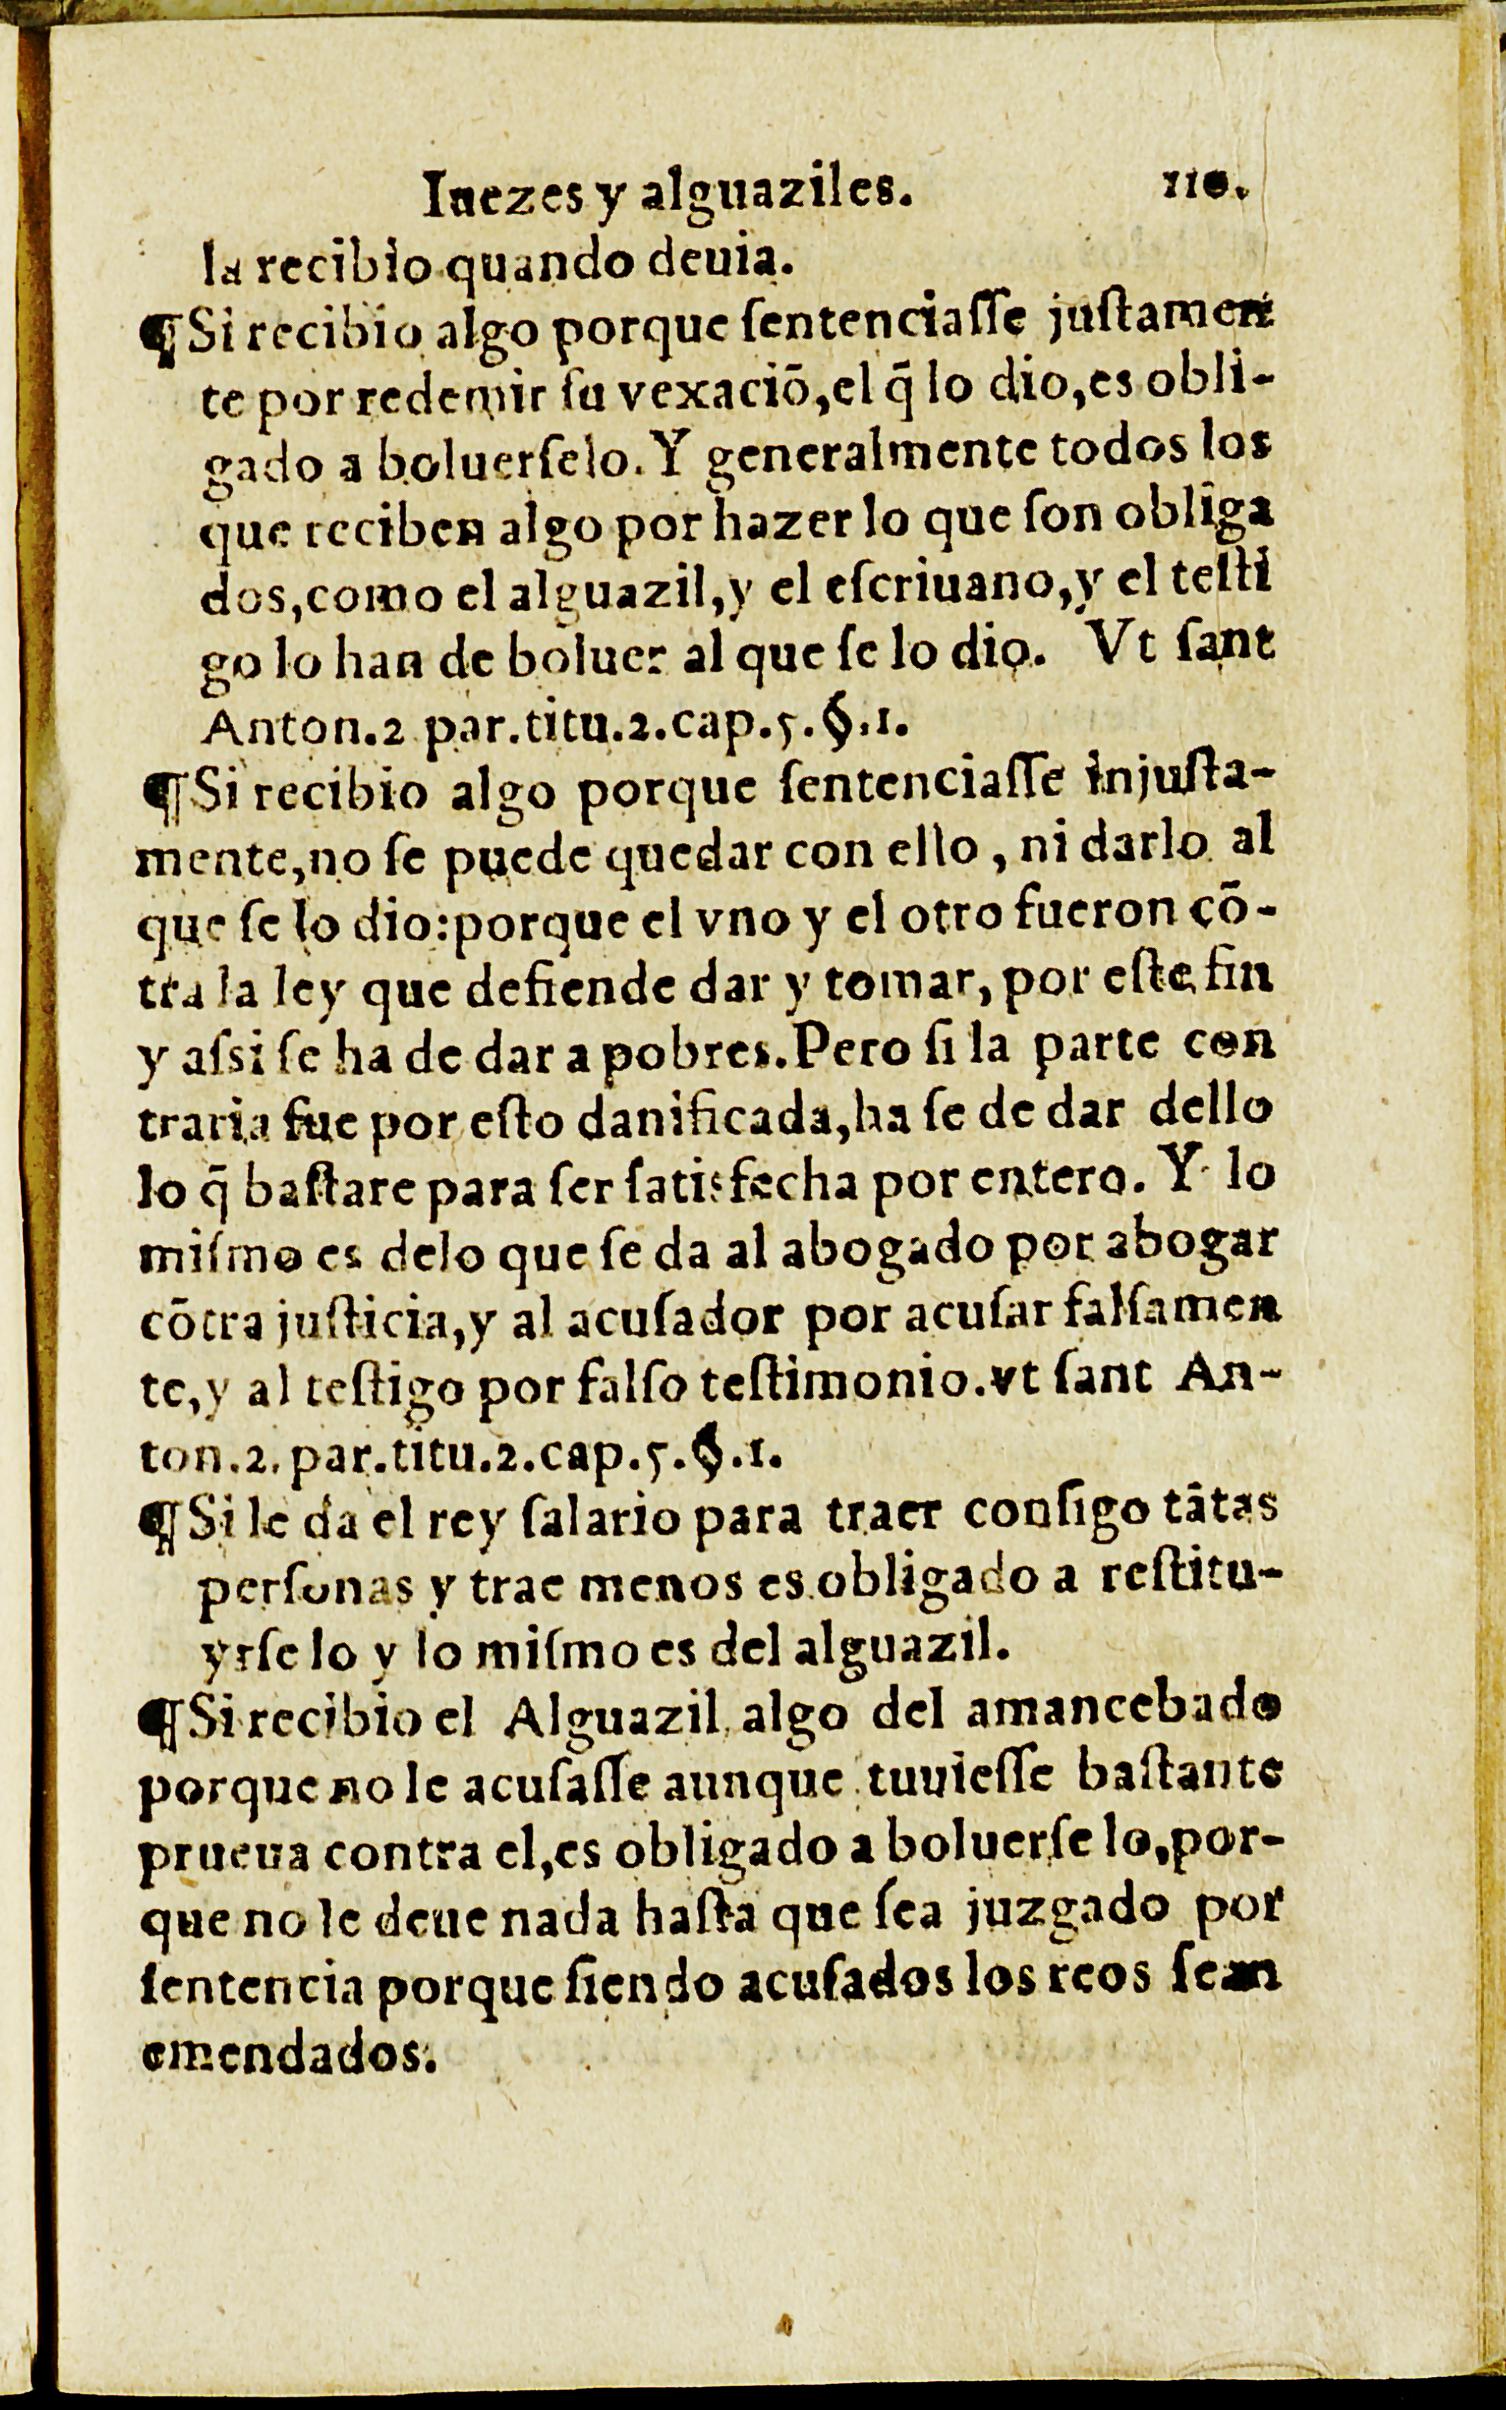 Iuezes y alguaziles. 110.
la recibio quando deuia.
¶Si recibio algo porque ſentenciaſſe juſtamen
te por redemir ſu vexaciō,el q̄ lo dio,es obli-
gado a boluerſelo. Y generalmente todos los
que reciben algo por hazer lo que ſon obliga
dos,como el alguazil,y el eſcriuano,y el teſti
go lo han de boluer al que ſe lo dio. Vt ſant
Anton.2 par.titu.2.cap.5.§.1.
¶Si recibio algo porque ſentenciaſſe injuſta-
mente,no ſe puede quedar con ello , ni darlo al
que ſe lo dio:porque el vno y el otro fueron cō-
tra la ley que defiende dar y tomar, por eſte fin
y aſsi ſe ha de dar a pobres.Pero ſi la parte con
traria fue por eſto danificada,ha ſe de dar dello
lo q̄ baſtare para ſer ſatisfecha por entero. Y lo
miſmo es delo que ſe da al abogado por abogar
cōtra juſticia,y al acuſador por acuſar falſamen
te,y al teſtigo por falſo teſtimonio.vt ſant An-
ton.2.par.titu.2.cap.5.§.1.
¶Si le da el rey ſalario para traer conſigo tātas
perſonas y trae menos es obligado a reſtitu-
yrſe lo y lo miſmo es del alguazil.
¶Si recibio el Alguazil algo del amancebado
porque no le acuſaſſe aunque tuuieſſe baſtante
prueua contra el,es obligado a boluerſe lo,por-
que no le deue nada haſta que ſea juzgado por
ſentencia porque ſiendo acuſados los reos ſean
emendados.